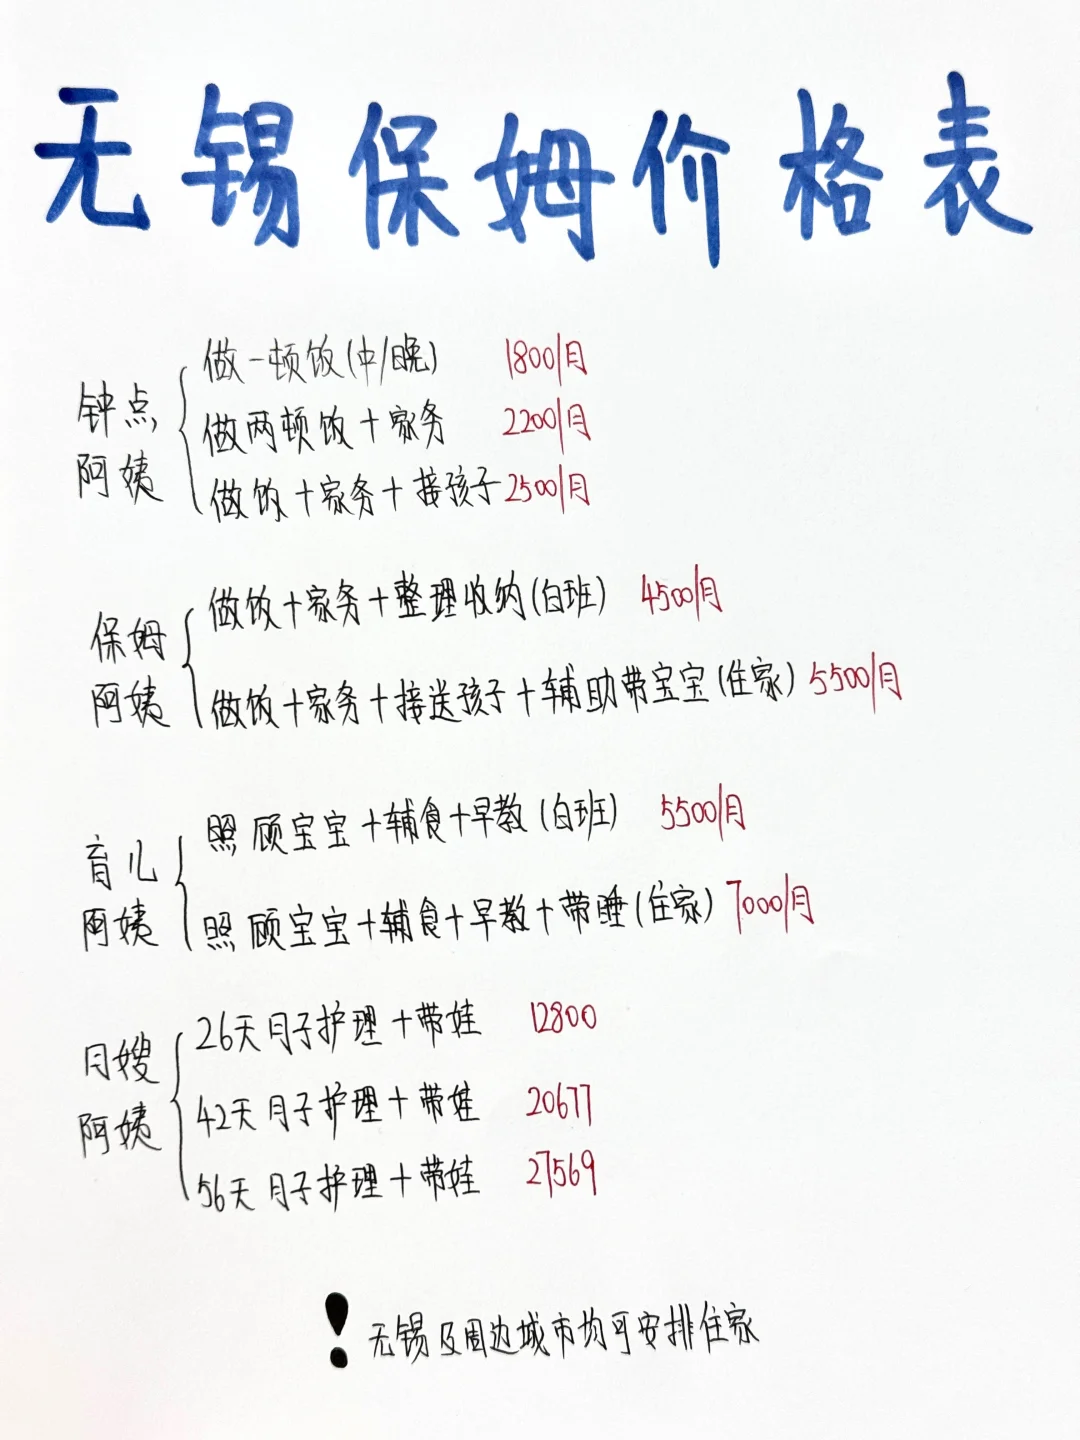 无锡保姆价格表
钟点阿姨
做一顿饭(中/晚) 1800/月
做两顿饭+家务 2200/月
做饭+家务+接孩子 2500/月
保姆阿姨
做饭+家务+整理收纳(白班) 4500/月
做饭+家务+接送孩子+辅助带宝宝(住家) 5500/月
育儿阿姨
照顾宝宝+辅食+早教(白班) 5500/月
照顾宝宝+辅食+早教+带睡(住家) 7000/月
月嫂阿姨
26天月子护理+带娃 12800
42天月子护理+带娃 20677
56天月子护理+带娃 27569
! 无锡及周边城市均可安排住家